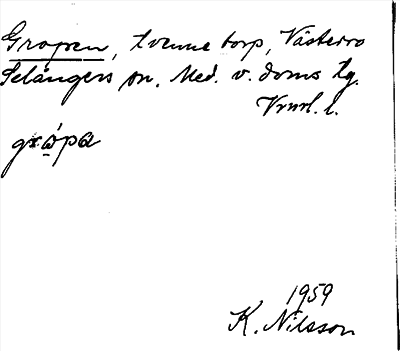 Gropen, tvenne torp, Västerro
Selångers sn. Med. v. doms tg.
Vrml. l.
grápa
1959
K. Nilsson